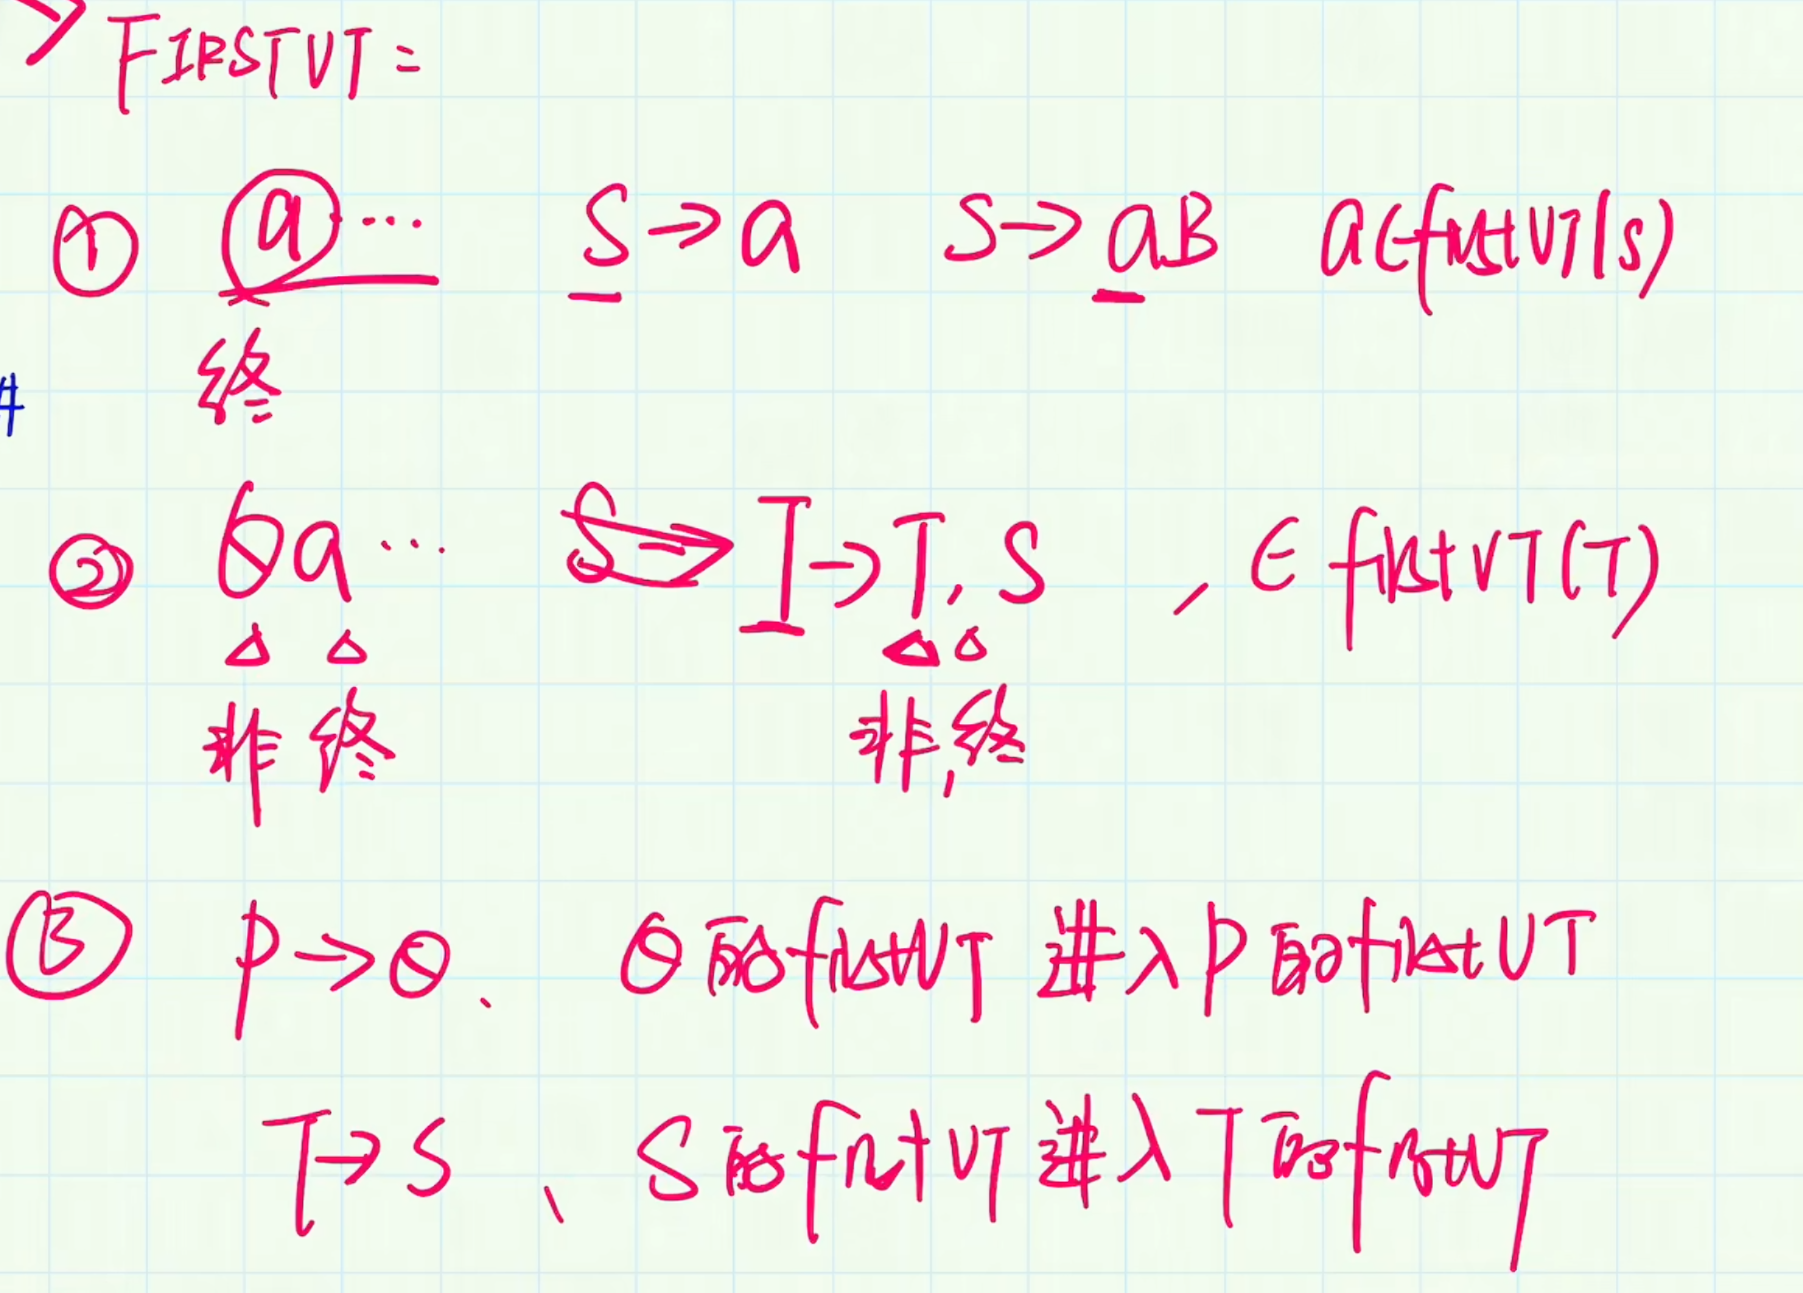 FIRSTVT =
① a… S→a S→aB a∈firstVT(S)
终
#
② Qa… T→T,S , ∈ firstVT(T)
非 终 非,终
③ P→Q. Q的firstVT 进入P的firstVT
T→S 、 S的firstVT进入T的firstVT